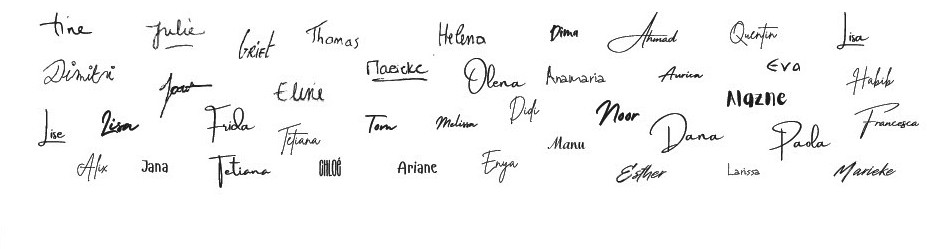 tine Julie Griet Thomas Helena Dima Ahmad Quentin Lisa
Dimitri Eline Maricke Olena Anamaria Aurica Eva Habib
Lise Lisa Frida Tetiana Tom Melissa Didi Noor Nazne Dana Paola Francesca
Alix Jana Tetiana CHLOÉ Ariane Enya Manu Esther Larissa Marieke